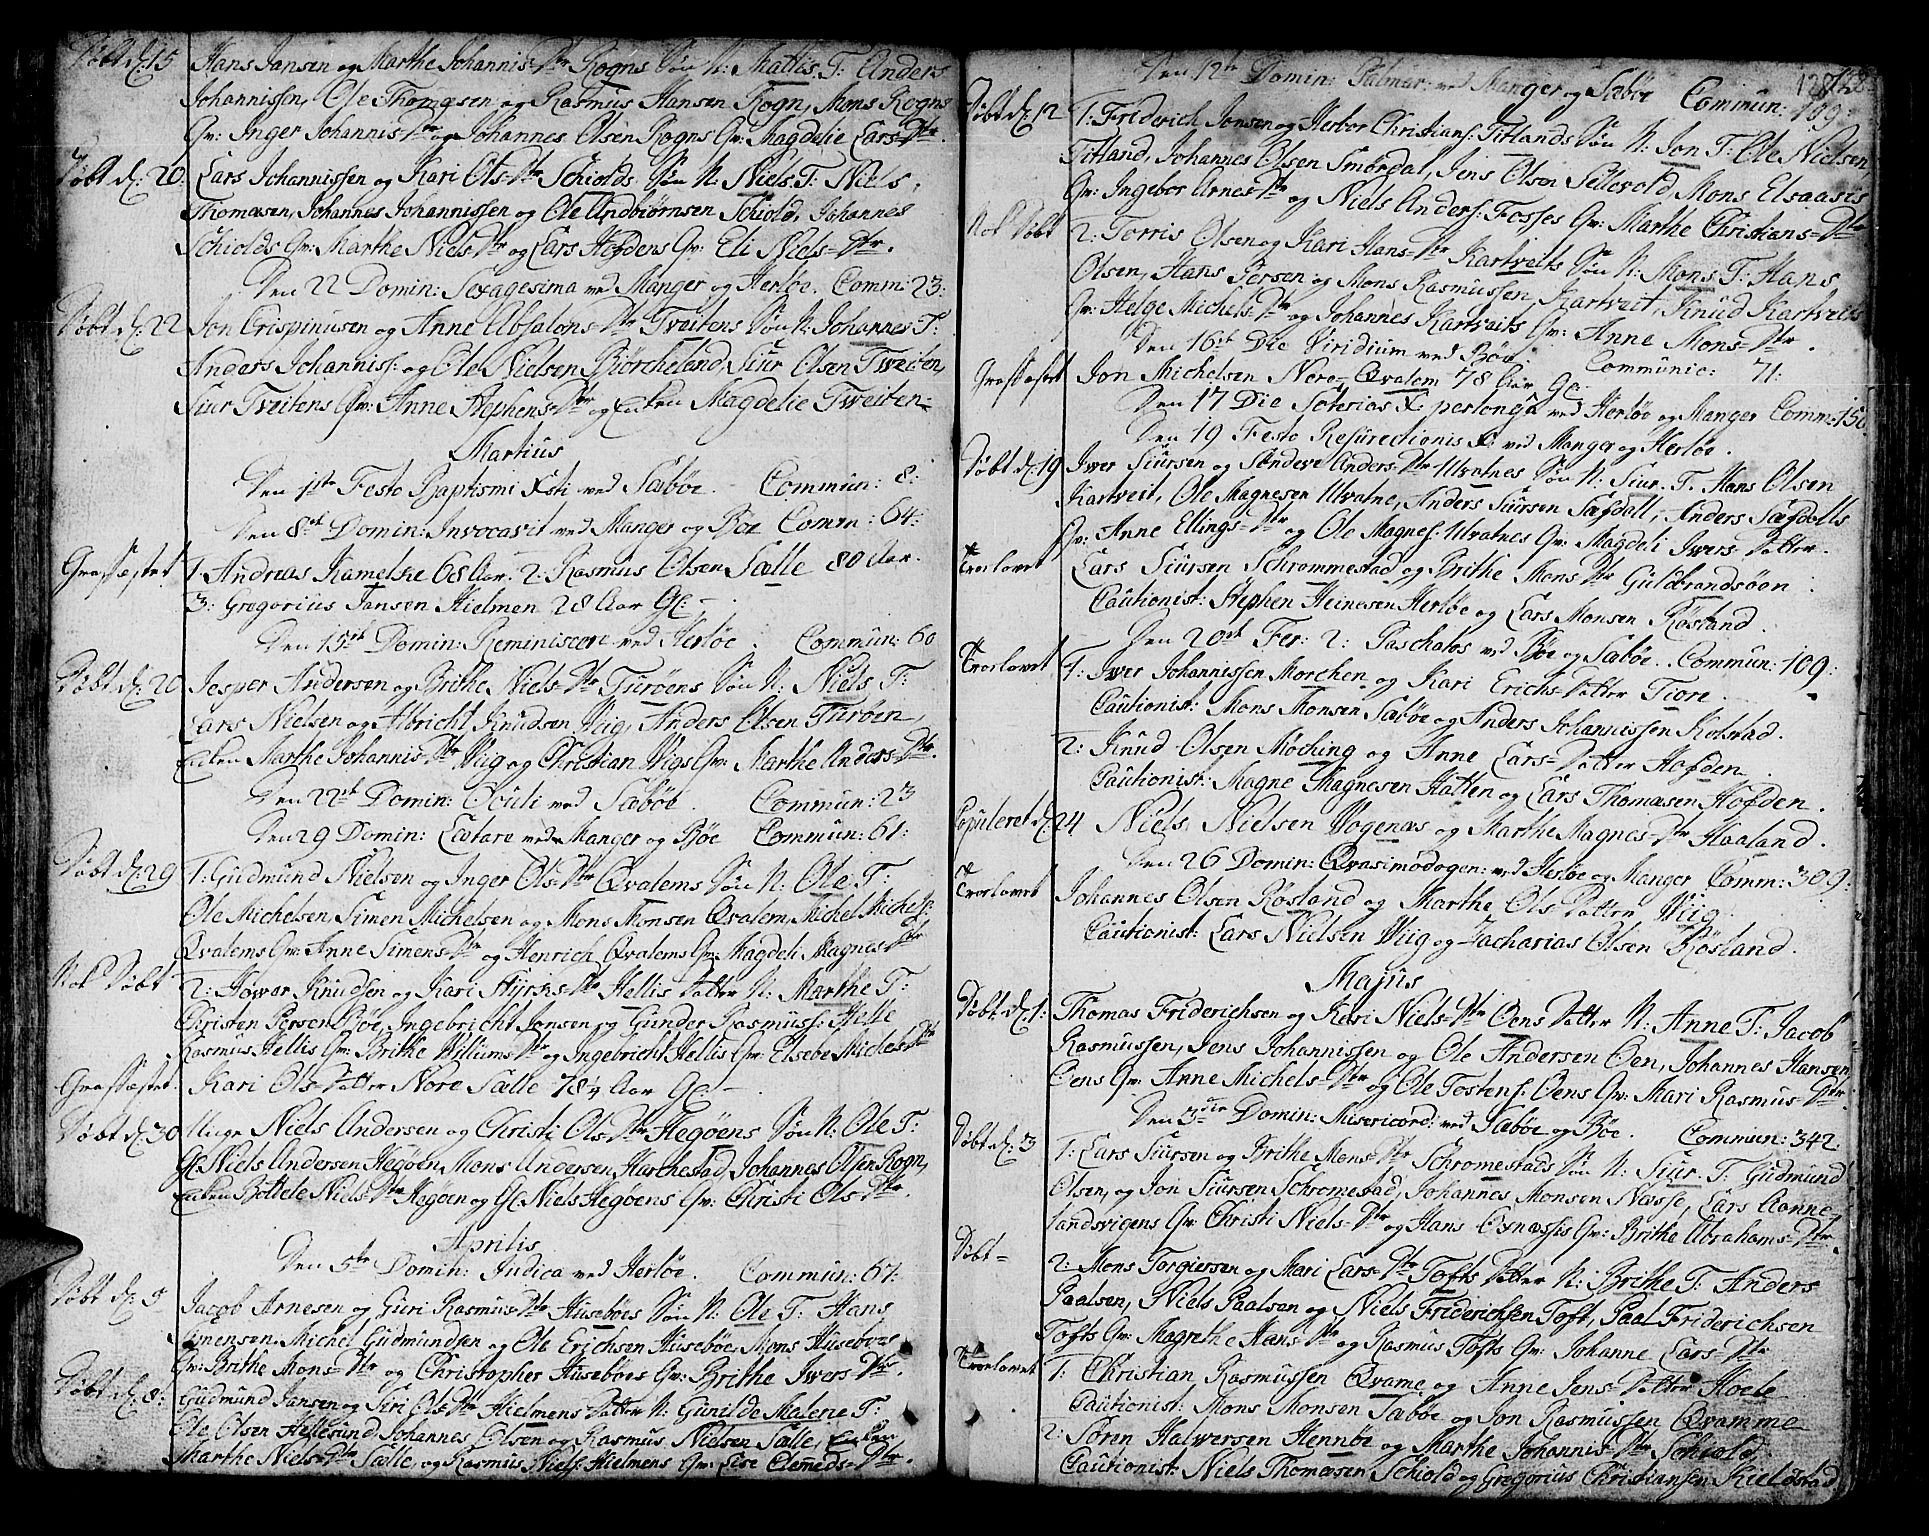 Døbt d: 15 Hans Jansen og Marthe Johannis-Dtr Rogns Søn N: Mattis. T: Anders
Johannissen, Ole Thomesen og Rasmus Hansen Rogn, Mons Rogns
Qv: Inger Johannis-Dtr og Johannes Olsen Rogns Qv: Magdelie Lars-Dtr.
Døbt d: 20. Lars Johannissen og Kari Ols-Dtr Schiolds Søn N: Niels. T: Niels
Thomæsen, Johannes Johannissen og Ole Andbiørnsen Schiold, Johannes
Schiolds Qv: Marthe Niels-Dtr og Lars Høfdens Qv: Eli Niels-Dtr.
Den 22 Domin: Sexagesima ved Manger og Herløe. Comm: 23.
Døbt d: 22 Jon Crispinusen og Anne Absalons-Dtr Tveitens Søn N: Johannes T:
Anders Johanniss: og Ole Nielsen Biørcheland, Siur Olsen Tveiten,
Siur Tveitens Qv: Anne Stephens-Dtr og Enken Magdelie Tweiten-
Martius
Den 1ste Festo Baptismi Xsti ved Sæbøe. Commun: 8:
Den 8de Domin: Invocavit ved Manger og Bøe Comm: 64:
Græsfæstet 1: Andreas Kamelske 68 Aar. 2: Rasmus Olsen Sælle 80 Aar.
3: Gregorius Jansen Hielmen 28 Aar Gl: -
Den 15de Domin: Reminiscere ved Herløe. Commun: 60
Døbt d: 20 Jesper Andersen og Brithe Niels-Dtr Turøens Søn N: Niels T:
Lars Nielsen og Albricht Knudsen Wiig, Anders Olsen Turøen,
Enken Marthe Johannis-Dtr Wiig og Christian Wigs Qv: Marthe Anders-Dtr.
Den 22de Domin: Oculi ved Sæbøe. Commun: 23
Den 29 Domin: Lætare ved Manger og Bøe Commun: 61:
Døbt d: 29 1: Gudmund Nielsen og Inger Ols-Dtr Qvalems Søn N: Ole T:
Ole Michelsen, Simen Michelsen og Mons Monsen Qvalem, Michel Michels:
Qvalems Qv: Anne Simens-Dtr og Henrich Qvalems Qv: Magdeli Magnes-Dtr
Nok Døbt 2: Howar Knudsen og Kari Hyrses-Dtr Hellis Datter N: Marthe T:
Christen Persen Bøe, Ingebricht Jonsen og Gunder Rasmuss: Helle
Rasmus Hellis Qv: Brithe Williums-Dtr og Ingebricht Hellis Qv: Elsebe Michels-Dtr
Græsfæstet. Kari Ols-Datter Nore Sælle 78 1/4 Aar Gl: -
Døbt d: 30 Unge Niels Andersen og Christi Ols-Dtr Hegøens Søn N: Ole T:
Gl: Niels Andersen Hegøen, Mons Andersen Harthestad, Johannes Olsen Rogn,
Enken Bottele Niels-Dtr Hegøen og Gl: Niels Hegøens Qv: Christi Ols-Dtr.
Aprilis
Den 5te Domin: Judica ved Herløe. Commun: 67:
Døbt d: 5 Jacob Arnesen og Guri Rasmus-Dtr Husebøes Søn N: Ole T: Hans
Simensen, Michel Gudmundsen og Ole Erichsen Husebøe, Mons Husebøes
Qv: Brithe Mons-Dtr og Christopher Husebøes Qv: Brithe Iwers-Dtr.
Døbt d: 8: Gudmund Jansen og Siri Ols-Dtr Hielmens Datter N: Gunilde Malene T:
Ole Olsen Hellesund, Johannes Olsen og Rasmus Nielsen Sælle, Enken
Marthe Niels-Dtr Sælle, og Rasmus Niels: Hielmens Qv: Lise Clemeds-Dtr.
128
Den 12te Domin: Palmar: ved Manger og Sæbøe Commun: 189:
Døbt d: 12 1: Friderich Jonsen og Herbor Christians: Titlands Søn N: Jon T: Ole Nielsen
Titland, Johannes Olsen Smørdal, Jens Olsen Sellevold, Mons Elsaasis
Qv: Ingebor Arnes-Dtr og Niels Anders: Fosses Qv: Marthe Christians-Dtr
Nok Døbt 2: Torris Olsen og Kari Hans-Dtr Kartveits Søn N: Mons. T: Hans
Olsen, Hans Persen og Mons Rasmussen, Kartveit, Knud Kartveits
Qv: Helge Michels-Dtr og Johannes Kartveits Qv: Anne Mons-Dtr.
Den 16de Die Viridium ved Bøe. Communic: 71:
Græsfæstet Jon Michelsen Nore-Qvalem 78 Aar Gl:
Den 17 Die Soterias X: perlongis ved Herløe og Manger Comm: 150
Den 19 Festo Resurectionis X: ved Manger og Herløe.
Døbt d: 19 Iwer Siursen og Sindeve Anders-Dtr Ulvatnes Søn N: Siur. T: Hans Olsen
Kartveit, Ole Magnesen Ulvatne, Anders Siursen Sæfdall, Anders Sæfdalls
Qv: Anne Ellings-Dtr og Ole Magnes: Ulvatnes Qv: Magdeli Iwers-Datter.
Troelovet Lars Siursen Schrommestad og Brithe Mons Dtr Guldbrandsøen
Cautionist: Stephen Heinesen Herløe og Lars Monsen Røsland.
Den 20de Fer: 2: Paschatos ved Bøe og Sæbøe. Commun: 109:
Troelovet 1: Iwer Johannissen Morchen og Kari Erichs-Datter Fiore.
Cautionist: Mons Monsen Sæbøe og Anders Johannissen Kolstad.
2: Knud Olsen Møching og Anne Lars-Datter Høfden.
Cautionist: Magne Magnesen Hatten og Lars Thomæsen Høfden.
Copuleret d: 24 Niels Nielsen Wogenæs og Marthe Magnes-Dtr Haaland.
Den 26 Domin: Qvasimodogen: ved Herløe og Manger Comm: 309:
Troelovet Johannes Olsen Røsland og Marthe Ols Datter Wiig
Cautionist: Lars Nielsen Wiig og Zacharias Olsen Røsland.
Majus
Døbt d: 1: Thomas Friderichsen og Kari Niels-Dtr Øens Datter N: Anne T: Jacob
Rasmussen, Jens Johannissen og Ole Andersen Øen, Johannes Hansen
Øens Qv: Anne Michels-Dtr og Ole Tostens: Øens Qv: Mari Rasmus-Dtr.
Den 3die Domin: Misericord: ved Sæbøe og Bøe. Commun: 342:
Døbt d: 3 1: Lars Siursen og Brithe Mons-Dtr Schromestads Søn N: Siur. T: Gudmund
Olsen, og Jon Siursen Schromestad, Johannes Monsen Næsse, Lars Aanne-
landsvigens Qv: Christi Niels-Dtr og Hans Øsnæssis Qv: Brithe Abrahams-Dtr.
Døbt - 2: Mons Torgiersen og Mari Lars-Dtr Tofts Datter N: Brithe T: Anders
Paalsen, Niels Paalsen og Niels Friderichsen Toft, Paal Friderichsen
Tofts Qv: Magrethe Hans-Dtr og Rasmus Tofts Qv: Johanne Lars-Dtr
Troelovet 1: Christian Rasmussen Qvame og Anne Jens-Datter Hoele
Cautionist: Mons Monsen Sæbøe og Jon Rasmussen Qvamme
2: Søren Halwersen Hennøe og Marthe Johannis-Dtr Schiold
Cautionist: Niels Thomæsen Schiold og Gregorius Christiansen Kielstad